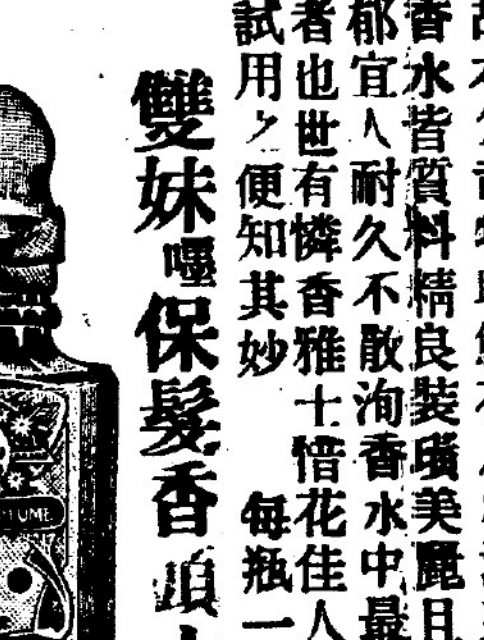 香水皆質料精良裝璜美麗日
郁宜人耐久不散洵香水中最
者也世有憐香雅士惜花佳人
試用之便知其妙 每瓶一
雙妹嚜保髮香頭
TUME